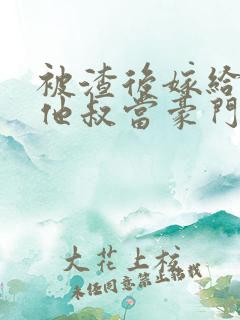 被渣后嫁给
他叔当豪门
大花上校
未经同意禁止转载